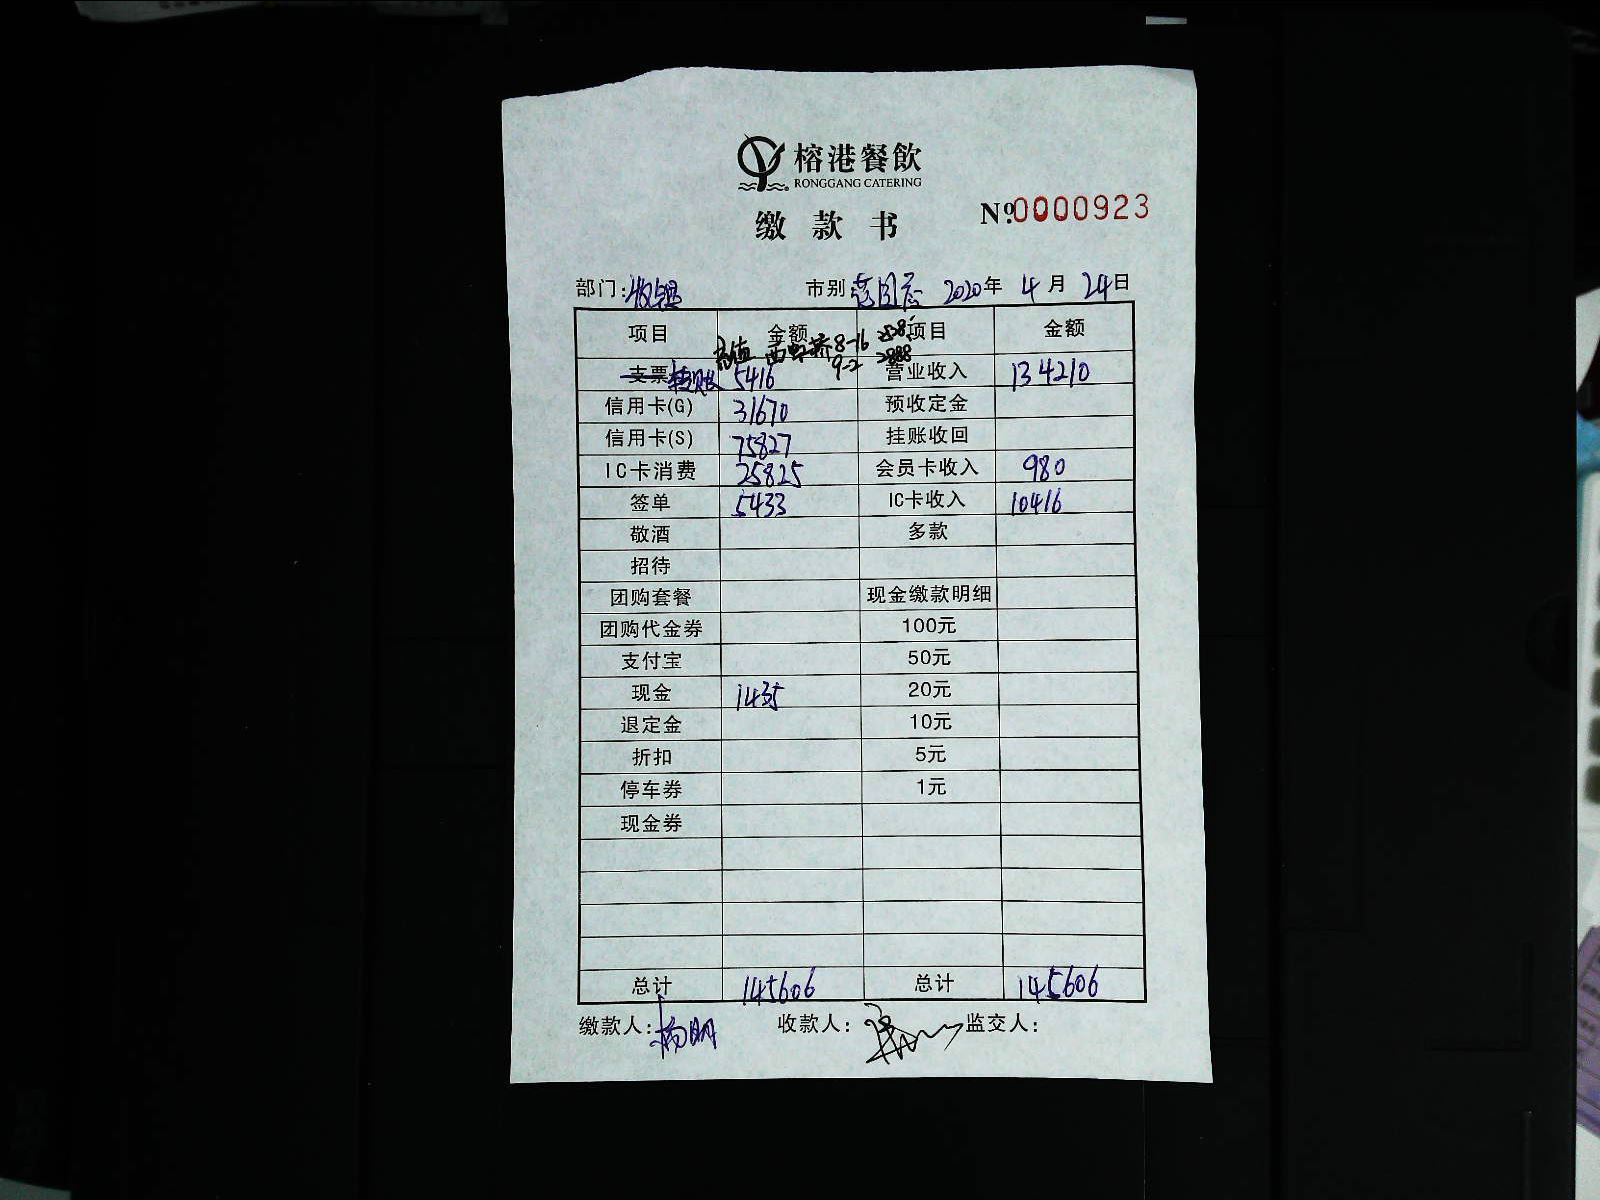 榕港餐飲
RONGGANG CATERING
缴款书
№0000923
部门: 收银 市别 2020年 4月 24日
项目 金额 项目 金额
充值 西虹桥 8-16 2528
9-2 2888
支票 转账 5416 营业收入 134210
信用卡(G) 31670 预收定金
信用卡(S) 75827 挂账收回
IC卡消费 25825 会员卡收入 980
签单 5433 IC卡收入 10416
敬酒 多款
招待
团购套餐 现金缴款明细
团购代金券 100元
支付宝 50元
现金 1435 20元
退定金 10元
折扣 5元
停车券 1元
现金券
总计 145606 总计 145606
缴款人: 杨明 收款人: 监交人: